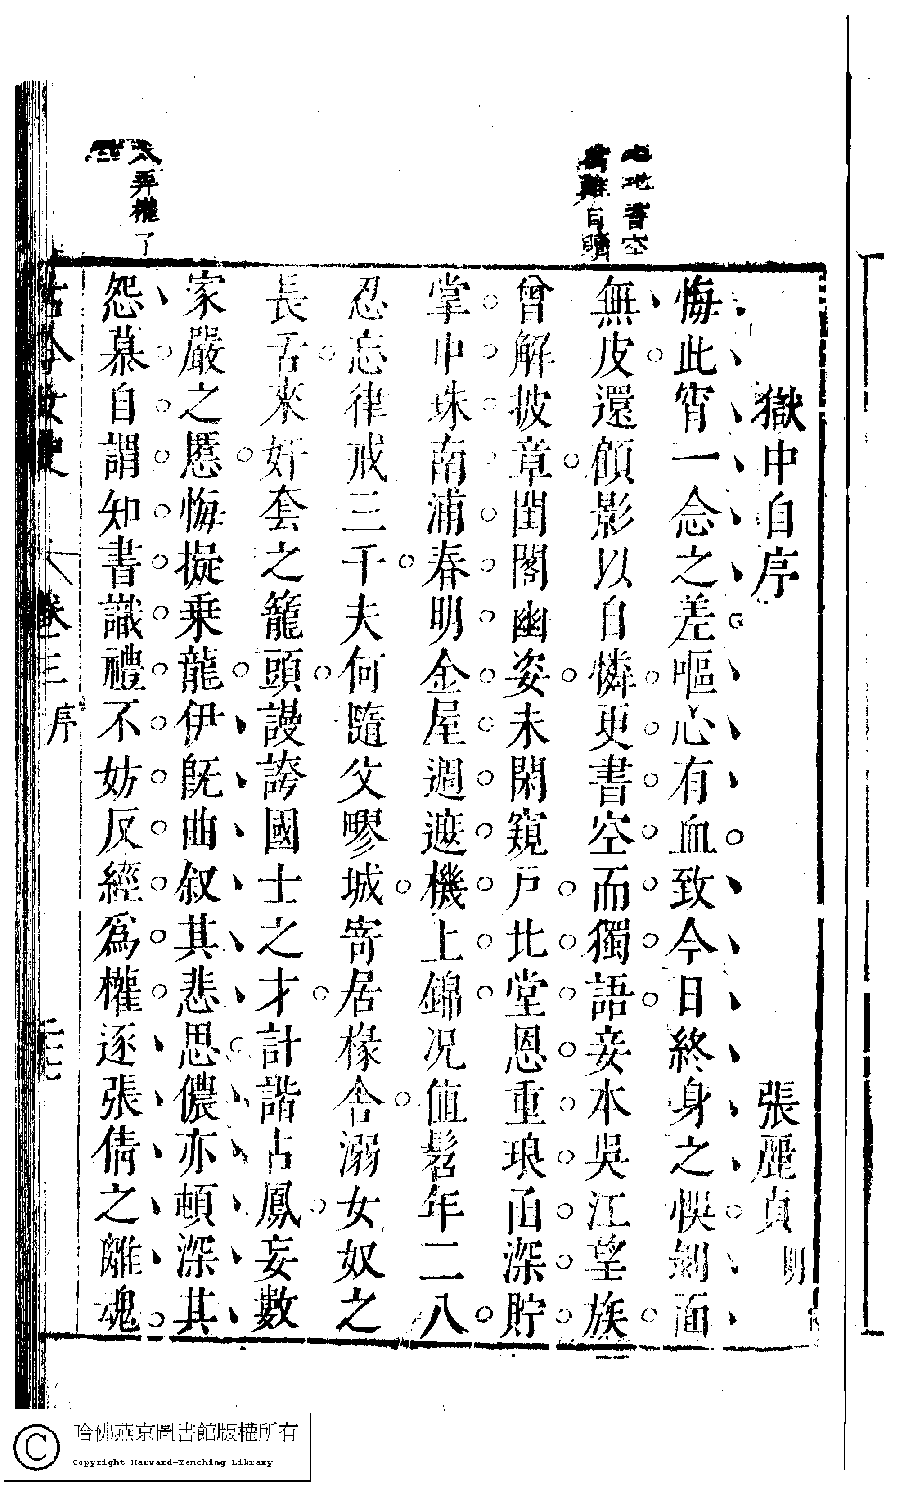 獄中自序
張麗貞 明
悔此宵一念之差嘔心有血致今日終身之怏剜面
無皮還顧影以自憐更書空而獨語妾本吳江望族
曾解披章閨閣幽姿未閑窺戶北堂恩重琅函深貯
掌中珠南浦春明金屋週遮機上錦况值髫年二八
忍忘律戒三千夫何隨父郻城寄居椽舍溺女奴之
長舌來奸套之籠頭謾誇國士之才計諧占鳳妄數
家嚴之慝悔擬乗龍伊旣曲叙其悲思儂亦頓深其
怨慕自謂知書識禮不妨反經爲權逐張倩之離魂
書空
難自贖
太弄權了
古今女史
卷三
序
哈佛燕京圖書館版權所有
Copyright Harvard-Yenching Library